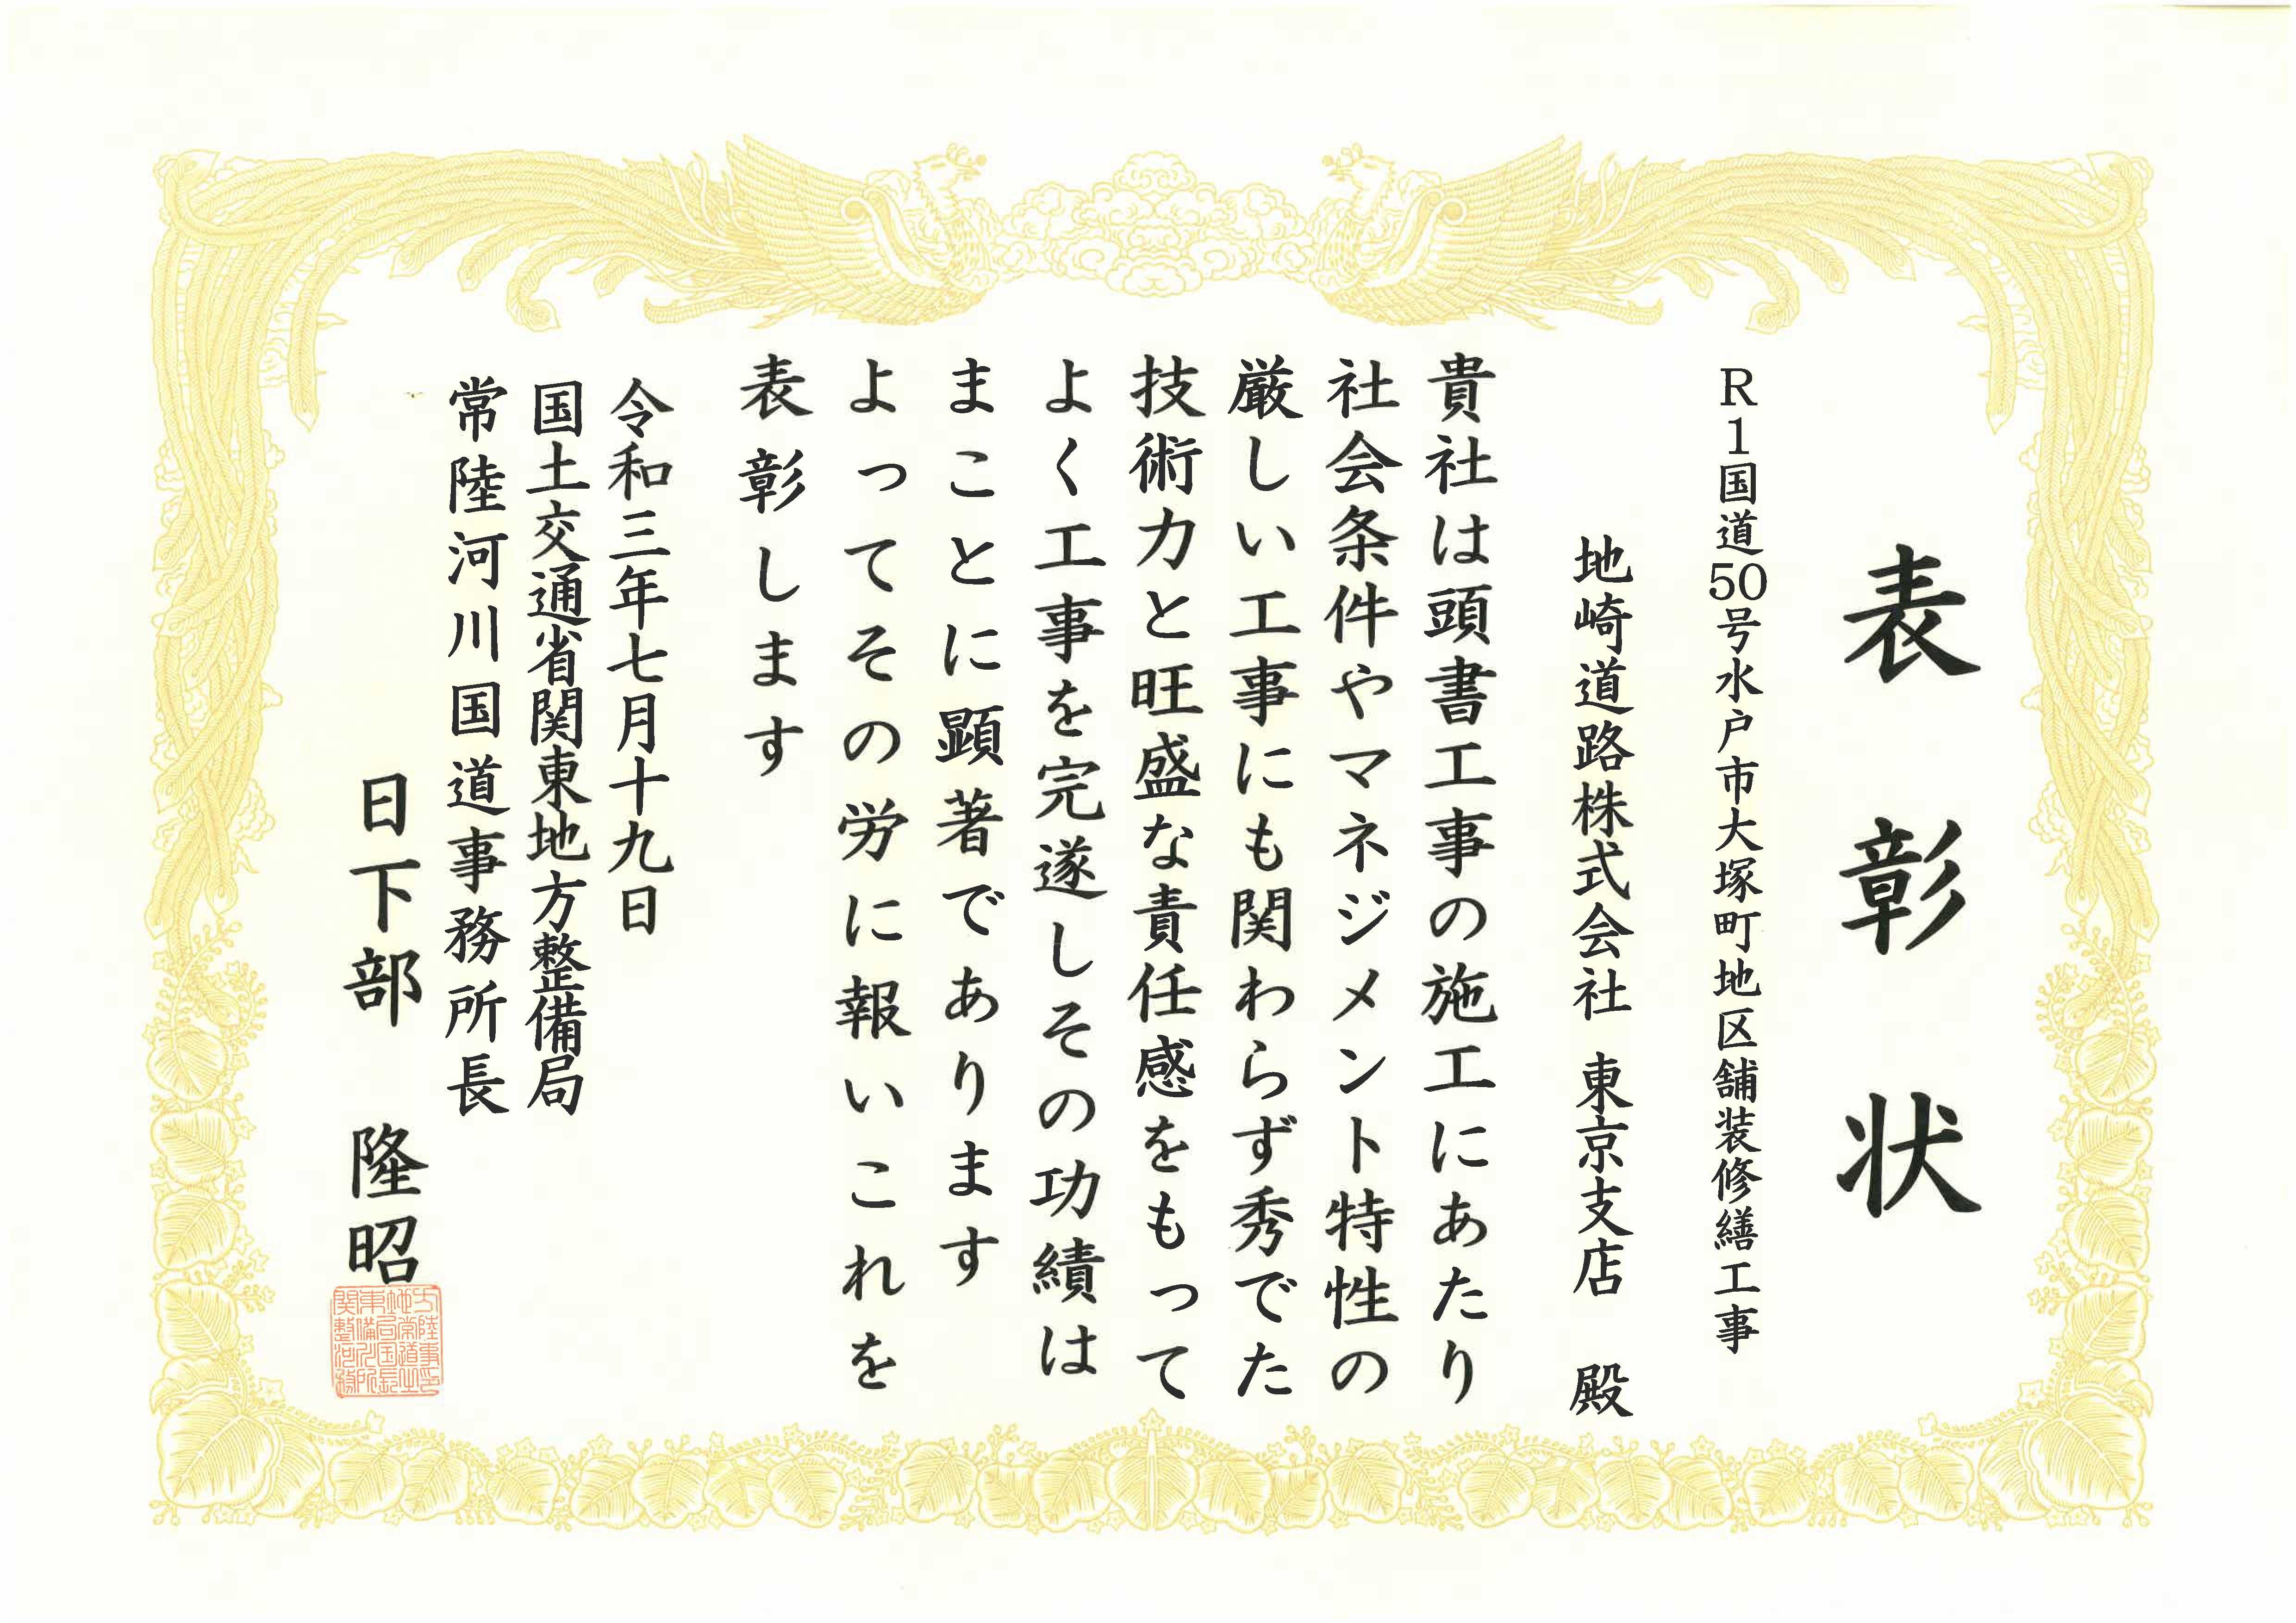 表彰状
R1国道50号水戸市大塚町地区舗装修繕工事
地崎道路株式会社 東京支店 殿
貴社は頭書工事の施工にあたり
社会条件やマネジメント特性の
厳しい工事にも関わらず秀でた
技術力と旺盛な責任感をもって
よく工事を完遂しその功績は
まことに顕著であります
よってその労に報いこれを
表彰します
令和三年七月十九日
国土交通省関東地方整備局
常陸河川国道事務所長
日下部 隆昭